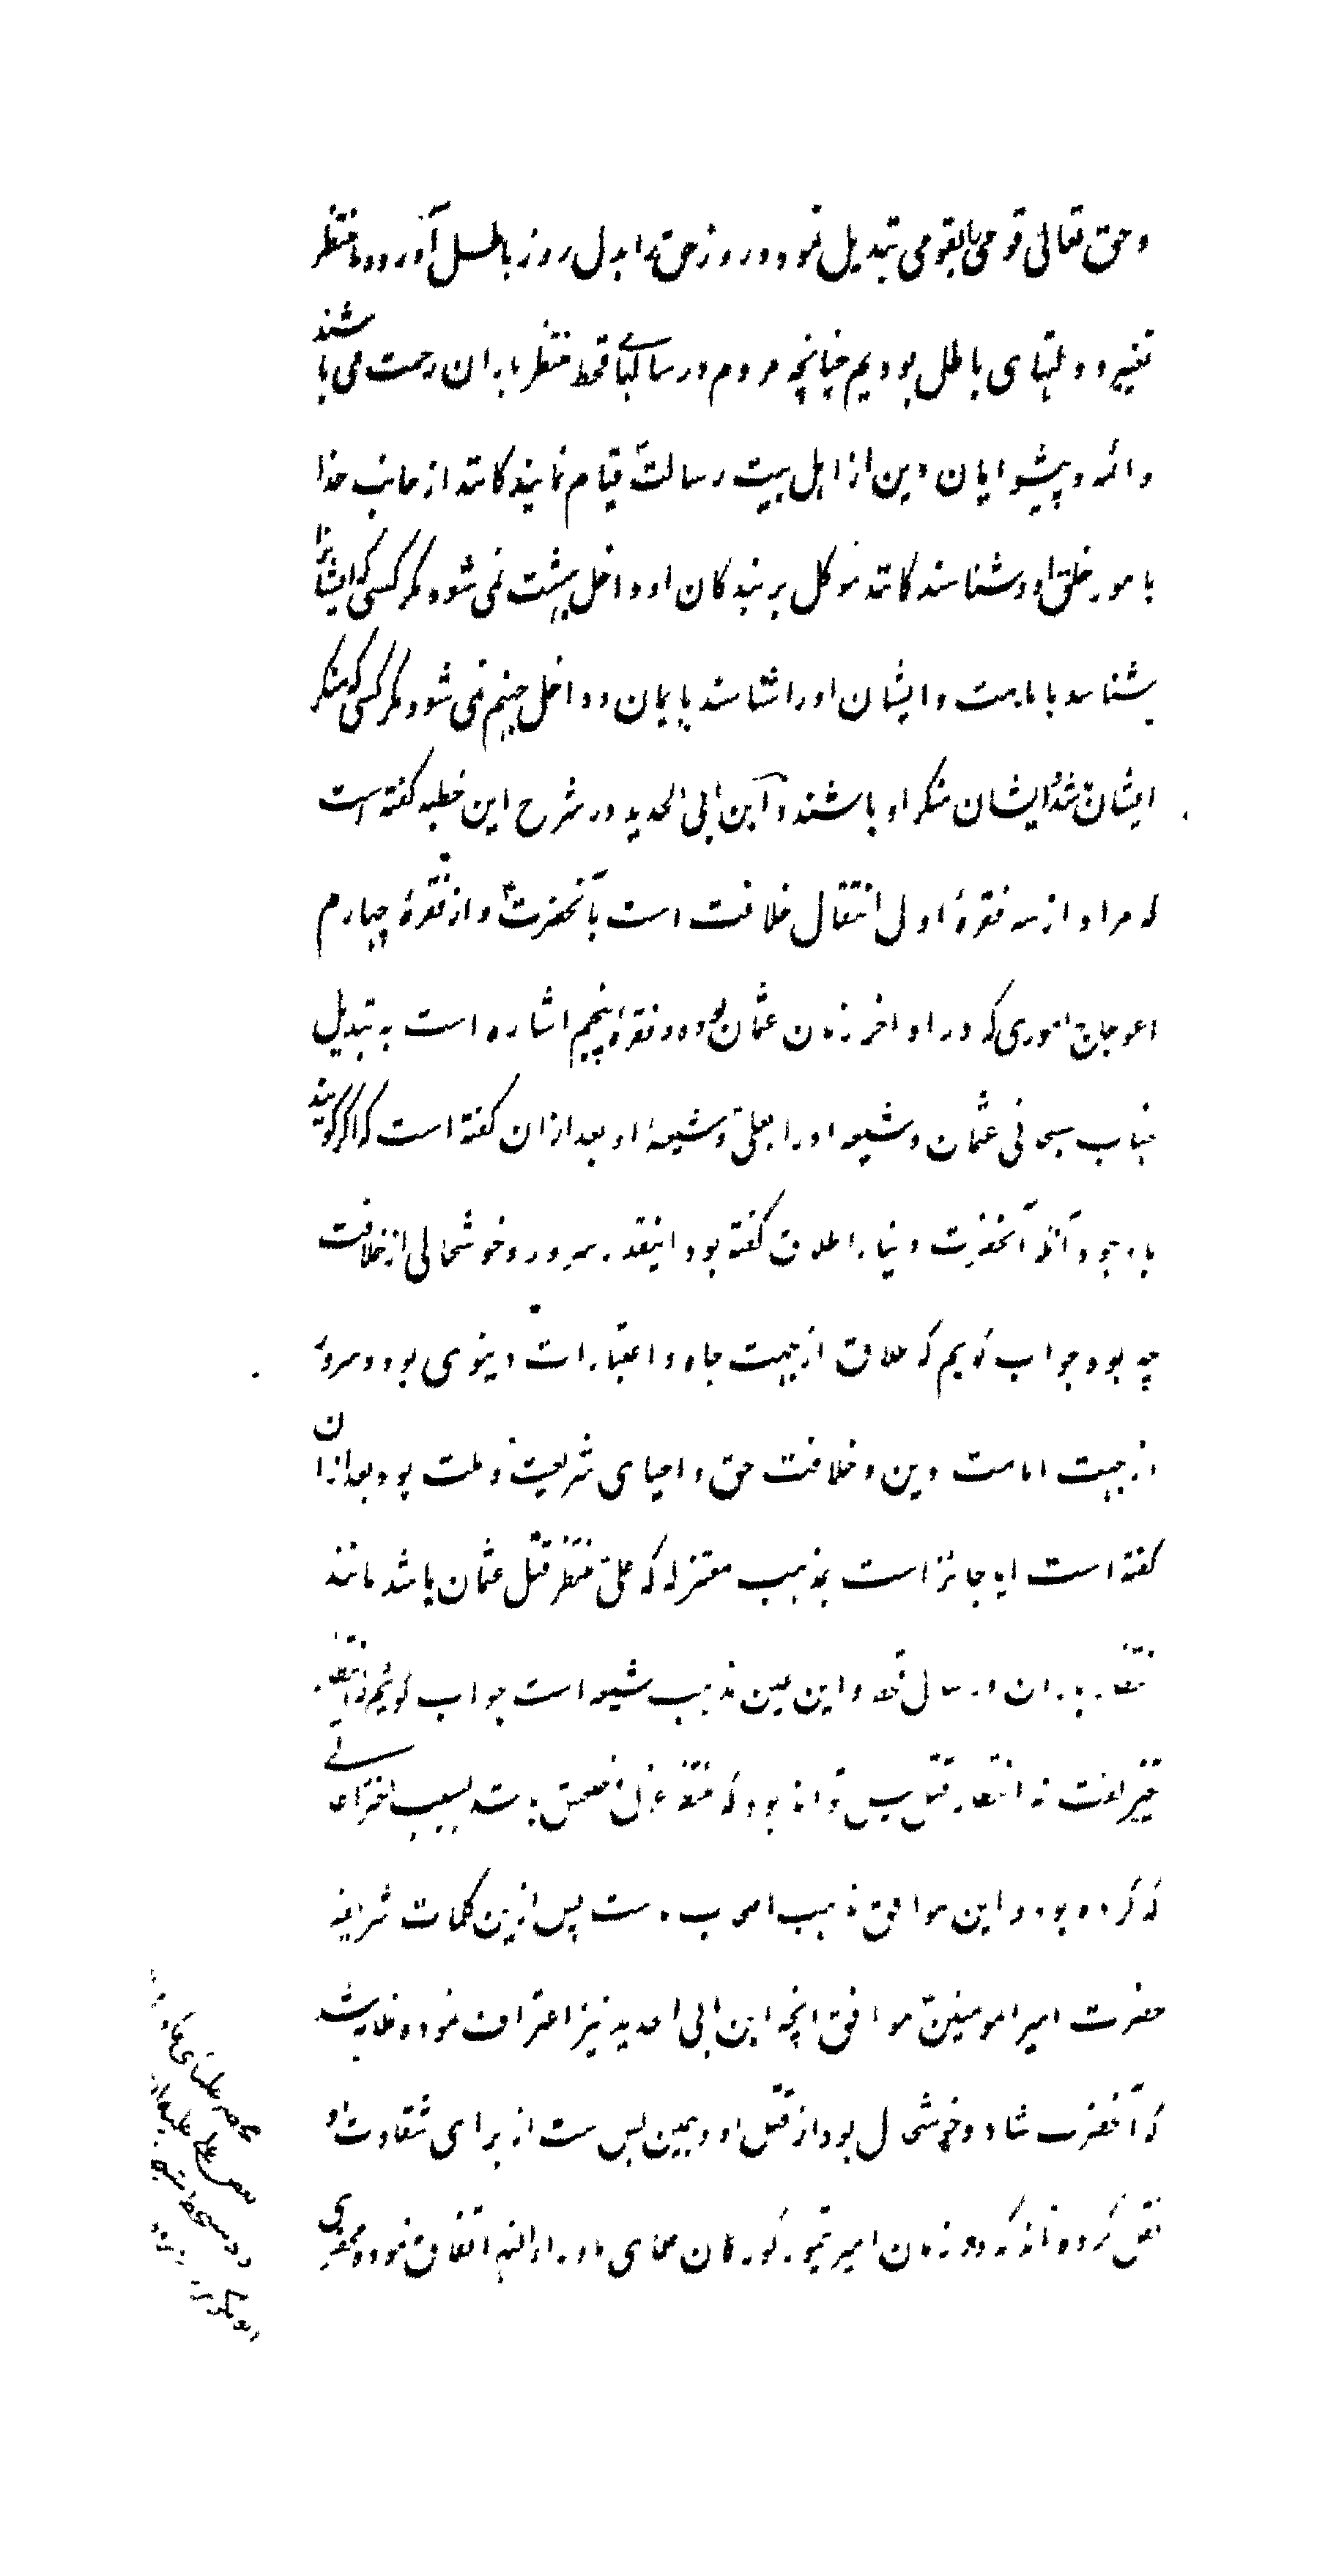 و حق تعالی قومی را بقومی تبدیل نمود و روز حق را بدل روز باطل آورد و ما منتظر
تغییر دولتهای باطل بودیم چنانچه مردم در سالهای قحط منتظر باران رحمت می باشند
و ائمه و پیشوایان دین از اهل بیت رسالت قیام نمایندگانند از جانب خدا
بامور خلق او و شناسندگانند موکل بر بندگان او داخل بهشت نمی شود مگر کسی که ایشانرا
بشناسد بامامت و ایشان او را شناسند بایمان و داخل جهنم نمی شود مگر کسی که منکر
ایشان شد و ایشان منکر او باشند و ابن ابی الحدید در شرح این خطبه گفته است
که مراد از سه فقرهٔ اولی انتقال خلافت است بآنحضرت و از فقرهٔ چهارم
اعوجاج اموری که در اواخر زمان عثمان بوده و فقرهٔ پنجم اشاره است به تبدیل
جناب سبحانی عثمان و شیعه او را بعلی و شیعهٔ او بعد ازان گفته است که اگر گویند
باوجود آنکه آنحضرت دنیا را طلاق گفته بود اینقدر سرور و خوشحالی از خلافت
چه بود جواب گویم که طلاق از جهت جاه و اعتبارات دنیوی بود و سرور
از جهت امامت دین و خلافت حق و احیای شریعت و ملت بود بعد ازان
گفته است ایا جائز است بمذهب معتزله که علی منتظر قتل عثمان باشد مانند
انتظار باران در سال قحط و این عین مذهب شیعه است جواب گوئیم که انتظار
تغییر گفت نه انتظار قتل پس تواند بود که منتظر عزل و خلعش باشد بسبب اختراعاتی
که کرده بود و این موافق مذهب اصحاب ماست پس ازین کلمات شریفه
حضرت امیرالمومنین موافق انچه ابن ابی الحدید نیز اعتراف نموده ظاهر شد
که آنحضرت شاد و خوشحال بود از قتل او و همین بس است از برای شقاوت او
نقل کرده اند که در زمان امیر تیمور گورکان علمای ماوراءالنهر اتفاق نموده محضری